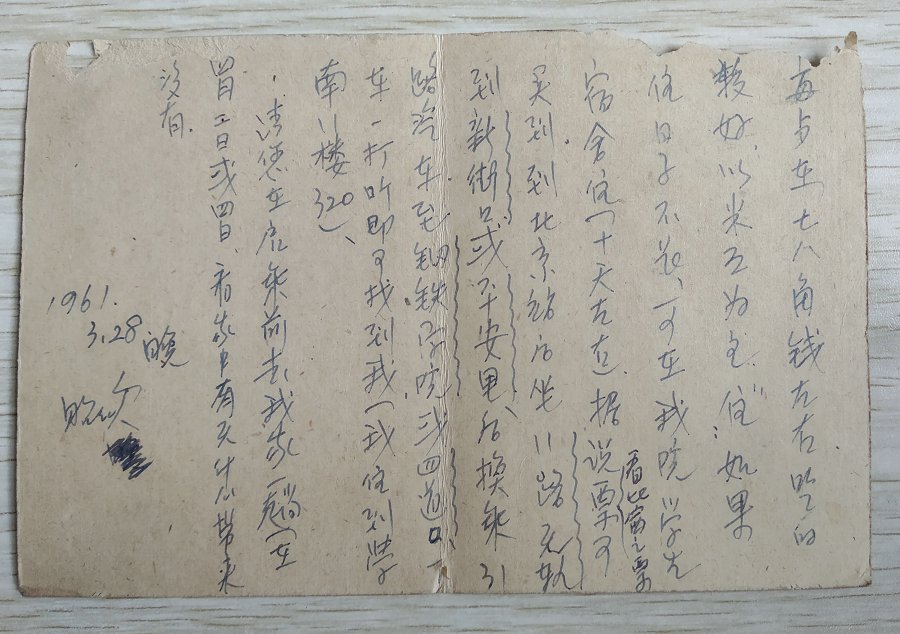 每占在七八角钱左右吃的
较好,以米豆为主,住:如果
住日子不长,可在我院学生
宿舍住(十天左右)据说票可
看比赛之票
买到,到北京站后坐11路无轨
到新街口或平安里后换乘31
路汽车至钢铁学院或四道口下
车,一打听即可找到我(我住到学
南11楼320)、
请您在启乘前去我家一趟(在
首二日或四日,看家中有无什么带来
没有.
1961.
3.28晚